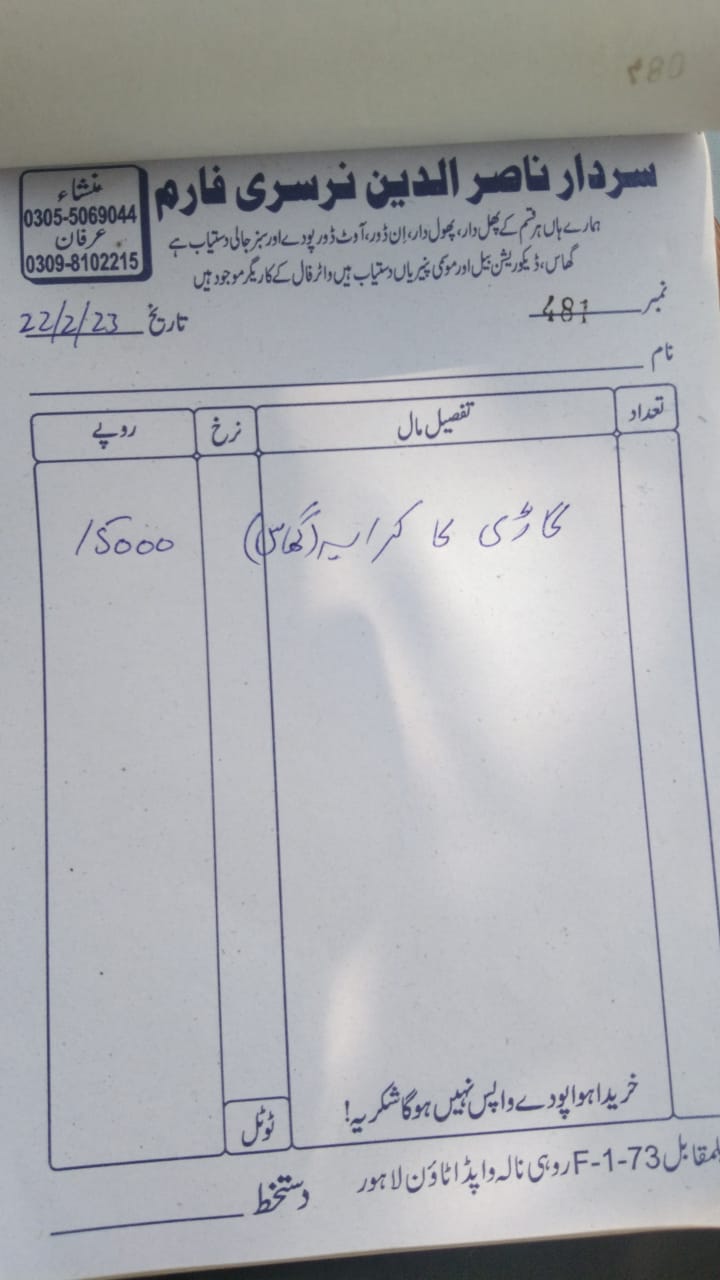 سردار ناصر الدین نرسری فارم
منشاء
0305-5069044
عرفان
0309-8102215
ہمارے ہاں ہر قسم کے پھل دار، پھول دار، اِن ڈور، آوٹ ڈور پودے اور سبز جالی دستیاب ہے
گھاس، ڈیکوریشن بیل اور موسمی پنیریاں دستیاب ہیں واٹر فال کے کاریگر موجود ہیں
نمبر 481
تاریخ 22/2/23
نام
تعداد تفصیل مال نرخ روپے
گاڑی کا کرایہ (گھاس) 15000
خریدا ہوا پودے واپس نہیں ہوگا شکریہ!
ٹوٹل
بلمقابل F-1-73 روہی نالہ واپڈا ٹاؤن لاہور
دستخط